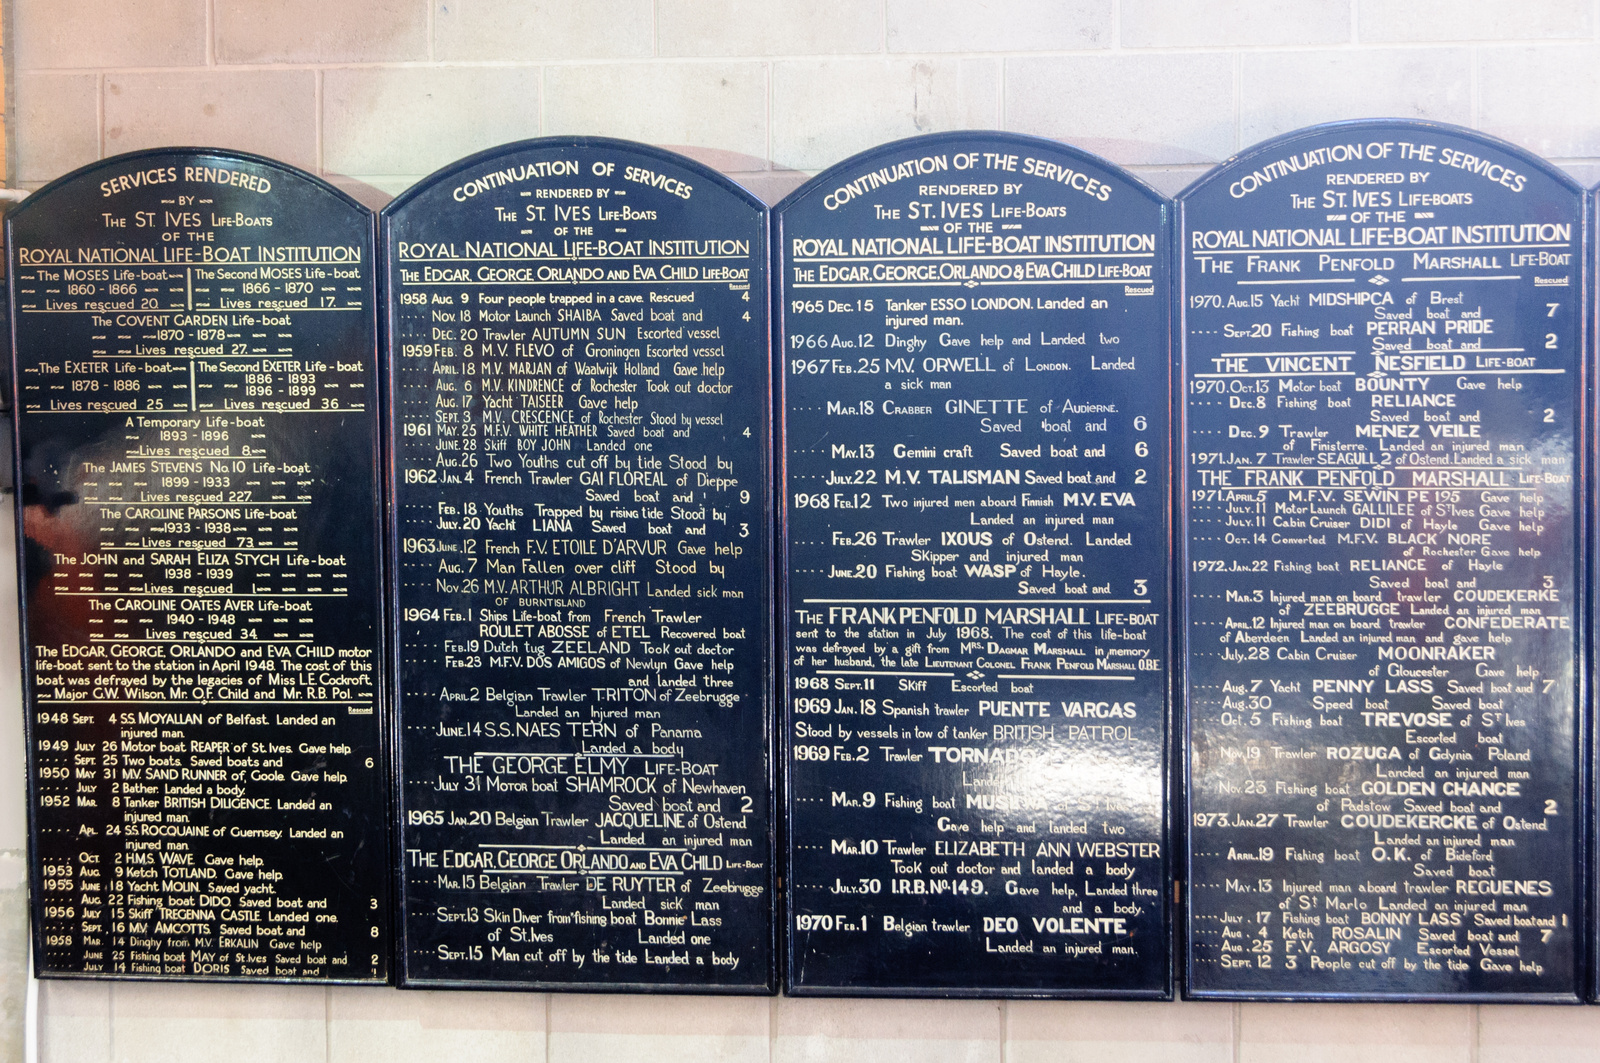 SERVICES RENDERED
BY
THE ST. IVES LIFE-BOATS
OF THE
ROYAL NATIONAL LIFE-BOAT INSTITUTION
The MOSES Life-boat
1860 - 1866
Lives rescued 20
The Second MOSES Life-boat
1866 - 1870
Lives rescued 17.
The COVENT GARDEN Life-boat
1870 - 1878
Lives rescued 27.
The EXETER Life-boat
1878 - 1886
Lives rescued 25
The Second EXETER Life-boat
1886 - 1893
1896 - 1899
Lives rescued 36
A Temporary Life-boat
1893 - 1896
Lives rescued 8
The JAMES STEVENS No. 10 Life-boat
1899 - 1933
Lives rescued 227.
The CAROLINE PARSONS Life-boat
1933 - 1938
Lives rescued 73
The JOHN and SARAH ELIZA STYCH Life-boat
1938 - 1939
Lives rescued 1
The CAROLINE OATES AVER Life-boat
1940 - 1948
Lives rescued 34
The EDGAR, GEORGE, ORLANDO and EVA CHILD motor
life-boat sent to the station in April 1948. The cost of this
boat was defrayed by the legacies of Miss L.E. Cockroft,
Major G.W. Wilson, Mr. O.F. Child and Mr. R.B. Pol.
Rescued
1948 SEPT. 4 S.S. MOYALLAN of Belfast. Landed an
injured man.
1949 JULY 26 Motor boat REAPER of St. Ives. Gave help.
.... SEPT. 25 Two boats. Saved boats and 6
1950 MAY 31 M.V. SAND RUNNER of Goole. Gave help.
.... JULY 2 Bather. Landed a body.
1952 MAR. 8 Tanker BRITISH DILIGENCE. Landed an
injured man.
.... APL. 24 S.S. ROCQUAINE of Guernsey. Landed an
injured man.
.... OCT. 2 H.M.S. WAVE. Gave help.
1953 AUG. 9 Ketch TOTLAND. Gave help.
1955 JUNE 18 Yacht MOLIN. Saved yacht.
.... AUG. 22 Fishing boat DIDO. Saved boat and 3
1956 JULY 15 Skiff TREGENNA CASTLE. Landed one.
.... SEPT. 16 M.V. AMCOTTS. Saved boat and 8
1958 MAR. 14 Dinghy from M.V. ERKALIN Gave help
.... JUNE 25 Fishing boat MAY of St. Ives Saved boat and 2
.... JULY 14 Fishing boat DORIS Saved boat and
CONTINUATION OF SERVICES
RENDERED BY
THE ST. IVES LIFE-BOATS
OF THE
ROYAL NATIONAL LIFE-BOAT INSTITUTION
THE EDGAR, GEORGE, ORLANDO AND EVA CHILD LIFE-BOAT
Rescued
1958 AUG. 9 Four people trapped in a cave. Rescued 4
.... NOV. 18 Motor Launch SHAIBA Saved boat and 4
DEC. 20 Trawler AUTUMN SUN Escorted vessel
1959 FEB. 8 M.V. FLEVO of Groningen Escorted vessel
.... APRIL 18 M.V. MARJAN of Waalwijk Holland Gave help
.... AUG. 6 M.V. KINDRENCE of Rochester Took out doctor
.... AUG. 17 Yacht TAISEER Gave help
.... SEPT. 3 M.V. CRESCENCE of Rochester Stood by vessel
1961 MAY. 25 M.F.V. WHITE HEATHER Saved boat and 4
.... JUNE. 28 Skiff BOY JOHN Landed one
AUG. 26 Two Youths cut off by tide Stood by
1962 JAN. 4 French Trawler GAI FLOREAL of Dieppe
Saved boat and 9
FEB. 18 Youths Trapped by rising tide Stood by
.... JULY. 20 Yacht LIANA Saved boat and 3
1963 JUNE. 12 French F.V. ETOILE D'ARVUR Gave help
.... AUG. 7 Man Fallen over cliff Stood by
NOV. 26 M.V. ARTHUR ALBRIGHT Landed sick man
OF BURNTISLAND
1964 FEB. 1 Ships Life-boat from French Trawler
ROULET ABOSSE of ETEL Recovered boat
.... FEB. 19 Dutch tug ZEELAND Took out doctor
.... FEB. 23 M.F.V. DOS AMIGOS of Newlyn Gave help
and landed three
.... APRIL 2 Belgian Trawler TRITON of Zeebrugge
Landed an Injured man
.... JUNE. 14 S.S. NAES TERN of Panama
Landed a body
THE GEORGE ELMY LIFE-BOAT
.... JULY 31 MOTOR boat SHAMROCK of Newhaven
Saved boat and 2
1965 JAN. 20 Belgian Trawler JACQUELINE of Ostend
Landed an injured man
THE EDGAR, GEORGE ORLANDO AND EVA CHILD LIFE-BOAT
.... MAR. 15 Belgian Trawler DE RUYTER of Zeebrugge
Landed sick man
.... SEPT. 13 Skin Diver from fishing boat Bonnie Lass
of St. Ives Landed one
.... SEPT. 15 Man cut off by the tide Landed a body
CONTINUATION OF THE SERVICES
RENDERED BY
THE ST. IVES LIFE-BOATS
OF THE
ROYAL NATIONAL LIFE-BOAT INSTITUTION
THE EDGAR, GEORGE, ORLANDO & EVA CHILD LIFE-BOAT
Rescued
1965 DEC. 15 Tanker ESSO LONDON. Landed an
injured man.
1966 AUG. 12 Dinghy Gave help and Landed two
1967 FEB. 25 M.V. ORWELL of LONDON. Landed
a sick man
.... MAR. 18 CRABBER GINETTE of AUDIERNE.
Saved boat and 6
.... MAY. 13 Gemini craft Saved boat and 6
.... JULY. 22 M.V. TALISMAN Saved boat and 2
1968 FEB. 12 Two injured men aboard Finnish M.V. EVA
Landed an injured man
.... FEB. 26 Trawler IXOUS of Ostend. Landed
SKipper and injured man
.... JUNE. 20 Fishing boat WASP of Hayle.
Saved boat and 3
THE FRANK PENFOLD MARSHALL LIFE-BOAT
sent to the station in July 1968. The cost of this life-boat
was defrayed by a gift from MRS. DAGMAR MARSHALL in memory
of her husband, the late LIEUTENANT COLONEL FRANK PENFOLD MARSHALL O.B.E.
1968 SEPT. 11 SKiff Escorted boat
1969 JAN. 18 Spanish trawler PUENTE VARGAS
Stood by vessels in tow of tanker BRITISH PATROL
1969 FEB. 2 Trawler
.... MAR. 9 Fishing boat
Gave help and landed two
.... MAR. 10 Trawler ELIZABETH ANN WEBSTER
Took out doctor and landed a body
.... JULY. 30 I.R.B. No. 149. Gave help, Landed three
and a body.
1970 FEB. 1 Belgian trawler DEO VOLENTE
Landed an injured man.
CONTINUATION OF THE SERVICES
RENDERED BY
THE ST. IVES LIFE-BOATS
OF THE
ROYAL NATIONAL LIFE-BOAT INSTITUTION
THE FRANK PENFOLD MARSHALL LIFE-BOAT
Rescued
1970. AUG. 15 Yacht MIDSHIPCA of Brest
Saved boat and 7
.... SEPT. 20 Fishing boat PERRAN PRIDE
Saved boat and 2
THE VINCENT NESFIELD LIFE-BOAT
1970. OCT. 13 Motor boat BOUNTY Gave help
.... DEC. 8 Fishing boat RELIANCE
Saved boat and 2
.... DEC. 9 Trawler MENEZ VEILE
of Finisterre. Landed an injured man
1971. JAN. 7 Trawler SEAGULL 2 of Ostend. Landed a sick man
THE FRANK PENFOLD MARSHALL LIFE-BOAT
1971. APRIL 5 M.F.V. SEWIN PE 195 Gave help
.... JULY. 11 Motor Launch GALLILEE of St Ives Gave help
.... JULY. 11 Cabin Cruiser DIDI of Hayle Gave help
.... OCT. 14 Converted M.F.V. BLACK NORE
of Rochester Gave help
1972. JAN. 22 Fishing boat RELIANCE of Hayle
Saved boat and 3
.... MAR. 3 Injured man on board trawler COUDEKERKE
of ZEEBRUGGE Landed an injured man
.... APRIL. 12 Injured man on board trawler CONFEDERATE
of Aberdeen Landed an injured man and gave help
.... JULY. 28 Cabin Cruiser MOONRAKER
of Gloucester Gave help
.... AUG. 7 Yacht PENNY LASS Saved boat and 7
.... AUG. 30 Speed boat Saved boat
.... OCT. 5 Fishing boat TREVOSE of St Ives
Escorted boat
.... NOV. 19 Trawler ROZUGA of Gdynia Poland
Landed an injured man
.... NOV. 23 Fishing boat GOLDEN CHANCE
of Padstow Saved boat and 2
1973. JAN. 27 Trawler COUDEKERCKE of Ostend
Landed an injured man
.... APRIL. 19 Fishing boat O.K. of Bideford
Saved boat
.... MAY. 13 Injured man aboard trawler REGUENES
of St Marlo Landed an injured man
.... JULY. 17 Fishing boat BONNY LASS Saved boat and 1
.... AUG. 4 Ketch ROSALIN Saved boat and 7
.... AUG. 25 F.V. ARGOSY Escorted Vessel
.... SEPT. 12 3 People cut off by the tide Gave help